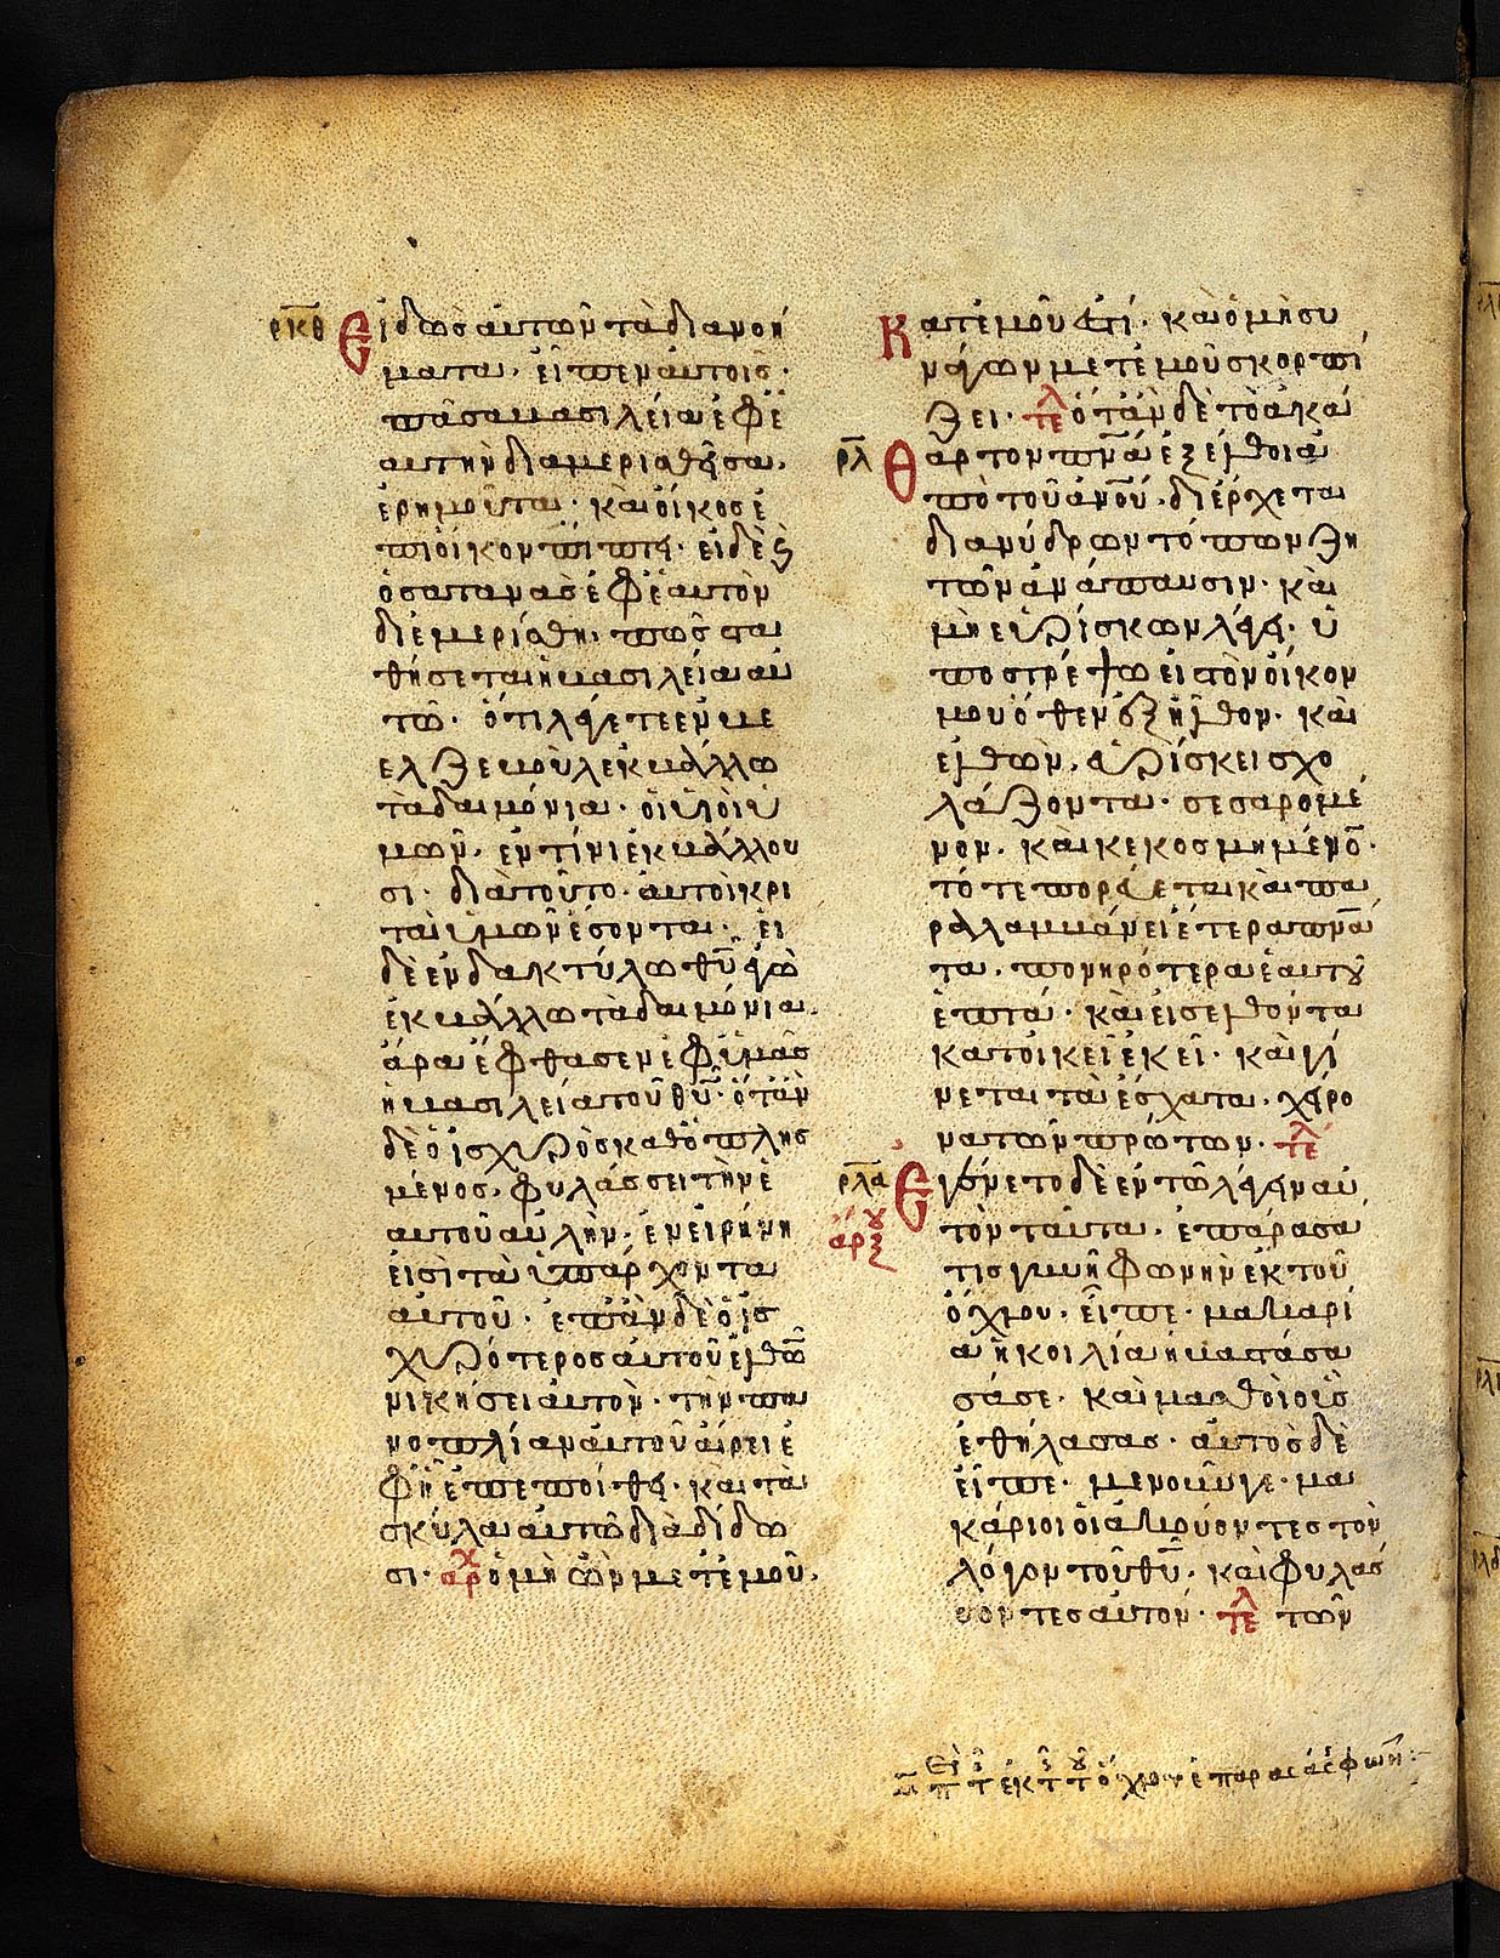 ρκθ Εἰδὼς αὐτῶν τὰ διανοή
ματα. εἶπεν αὐτοῖς·
πᾶσα βασιλεία ἐφ' ἑ
αυτὴν διαμερισθεῖσα.
ἐρημοῦται· καὶ οἶκος ἐ
πὶ οἶκον πίπτει· εἰ δὲ καὶ
ὁ σατανᾶς ἐφ' ἑαυτὸν
διεμερίσθη. πῶς στα
θήσεται ἡ βασιλεία αὐ
τοῦ· ὅτι λέγετε ἐν βε
ελζεβοὺλ ἐκβάλλω
τὰ δαιμόνια· οἱ υἱοὶ ὑ
μῶν. ἐν τίνι ἐκβάλλου
σι· διὰ τοῦτο· αὐτοὶ κρι
ταὶ ὑμῶν ἔσονται· εἰ
δὲ ἐν δακτύλω θυ ἐγὼ
ἐκβάλλω τὰ δαιμόνια.
ἄρα ἔφθασεν ἐφ' ὑμᾶς
ἡ βασιλεία τοῦ θυ· ὅταν
δὲ ὁ ἰσχυρὸς καθοπλισ
μένος. φυλάσσει τὴν ἑ
αυτοῦ αὐλὴν. ἐν εἰρήνη
εἰσὶ τὰ ὑπάρχοντα
αὐτοῦ· ἐπὰν δὲ ὁ ἰσ
χυρότερος αὐτοῦ ἐλθὼ
νικήσει αὐτὸν· τὴν πα
νοπλίαν αὐτοῦ αἴρει ἐ
φ' ἧ ἐπεποίθει· καὶ τὰ
σκύλα αὐτοῦ διαδίδω
σι· αρχ ὁ μὴ ὢν μετ' ἐμοῦ.
Κατ' ἐμοῦ ἐστί· καὶ ὁ μὴ συ
νάγων μετ' ἐμοῦ σκορπί
ζει· τελ ὅταν δὲ τὸ ἀκά
ρλ Θαρτον πνα ἐξέλθοι ἀ
πὸ τοῦ ανου. διέρχεται
δι' ἀνύδρων τόπων ζη
τοῦν ἀνάπαυσιν· καὶ
μὴ εὑρίσκων λέγει· ὑ
ποστρέψω εἰς τὸν οἶκον
μου ὅθεν ἐξῆλθον· καὶ
ἐλθὼν. εὑρίσκει σχο
λάζοντα· σεσαρομέ
νον. καὶ κεκοσμημένο·
τότε πορεύεται καὶ πα
ραλαμβάνει ἕτερα πνα
τα. πονηρότερα ἑαυτοῦ
ἑπτά· καὶ εἰσελθόντα
κατοικεῖ ἐκεῖ· καὶ γί
νεται τὰ ἔσχατα. χείρο
να τῶν πρώτων· τελ
ρλα Ἐγένετο δὲ ἐν τῶ λέγειν αὐ
τὸν ταῦτα. ἐπάρασα
τις γυνὴ φωνὴν ἐκ τοῦ
ὄχλου. εἶπε· μακαρί
α ἡ κοιλία ἡ βαστάσα
σά σε· καὶ μασθοὶ οὓς
ἐθήλασας· αὐτὸς δὲ
εἶπε· μενοῦνγε· μα
κάριοι οἱ ἀκούοντες τὸν
λόγον τοῦ θυ· καὶ φυλάσ
σοντες αὐτόν· τελ τῶν